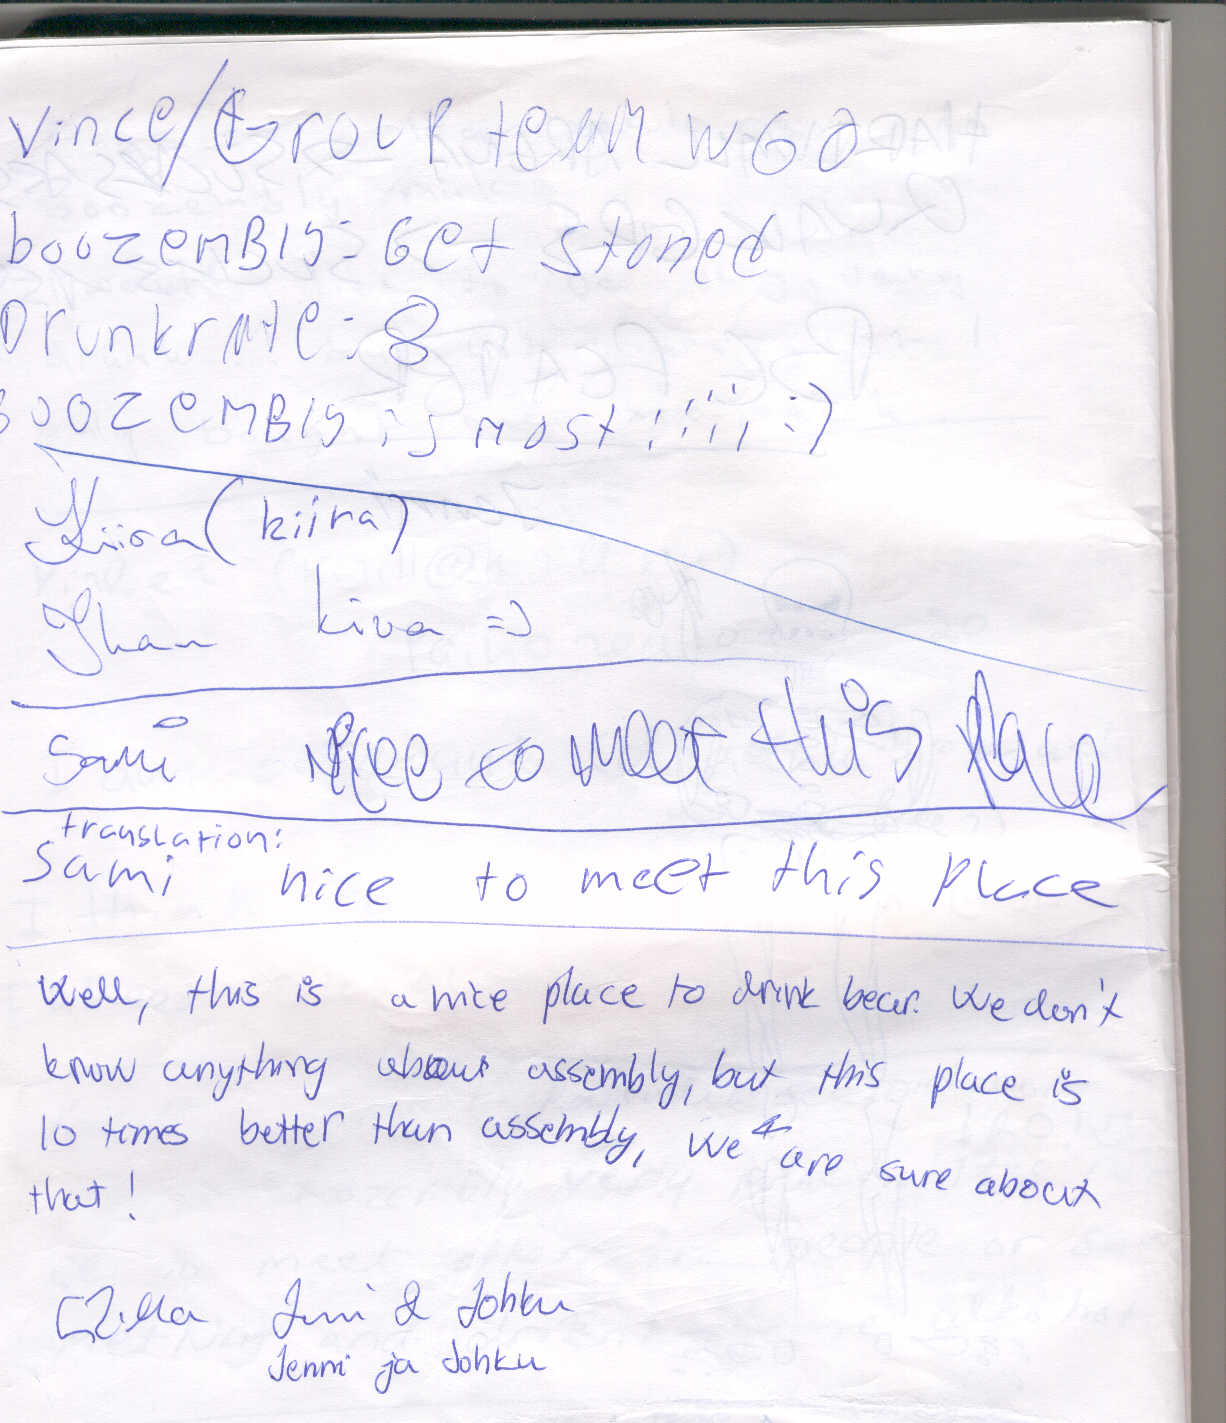 Vince/Group team W60
boozembly: Get stoned
Drunkrate: 8
boozembly is most!!¡¡¡ :)
Kiira (kiira)
Jhan kiva =)
Sami Nice to meet this place
translation:
Sami nice to meet this place
Well, this is a nice place to drink bear. We don't
know anything about assembly, but this place is
10 times better than assembly, we are sure about
that!
Jenni & Johku
Jenni ja Johku